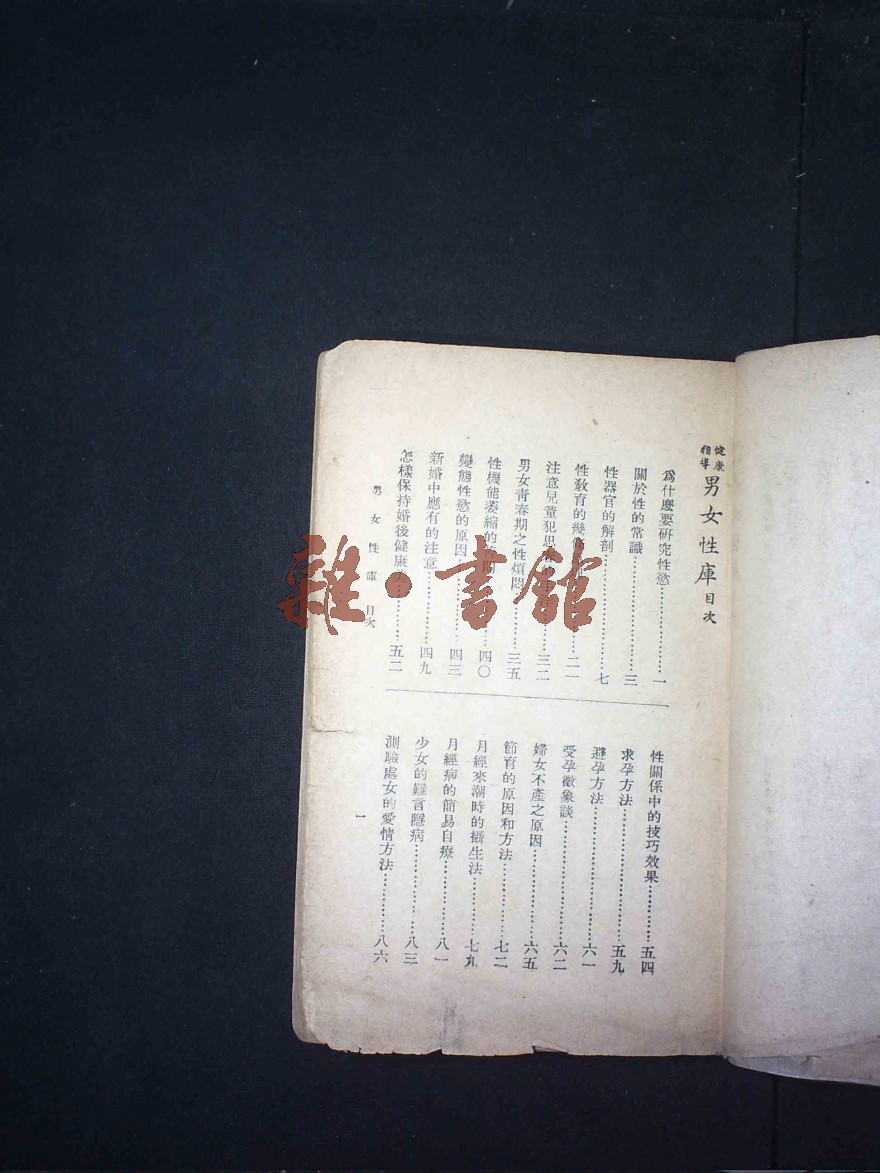 健康指導 男女性庫目次
為什麼要研究性慾……………一
關於性的常識……………三
性器官的解剖……………七
性教育的幾……………二一
注意兒童犯……………三二
男女青春期之性煩悶……三五
性機能萎縮的……………四〇
變態性慾的原因……………四三
新婚中應有的注意……………四九
怎樣保持婚後健康美……………五二
性關係中的技巧效果………五四
求孕方法……………五九
避孕方法……………六一
受孕徵象談……………六二
婦女不產之原因……………六五
節育的原因和方法………七二
月經來潮時的攝生法……七九
月經病的簡易自療………八一
少女的難言隱病……………八三
測驗處女的愛情方法………八六
男女性庫 目次
一
雜·書館